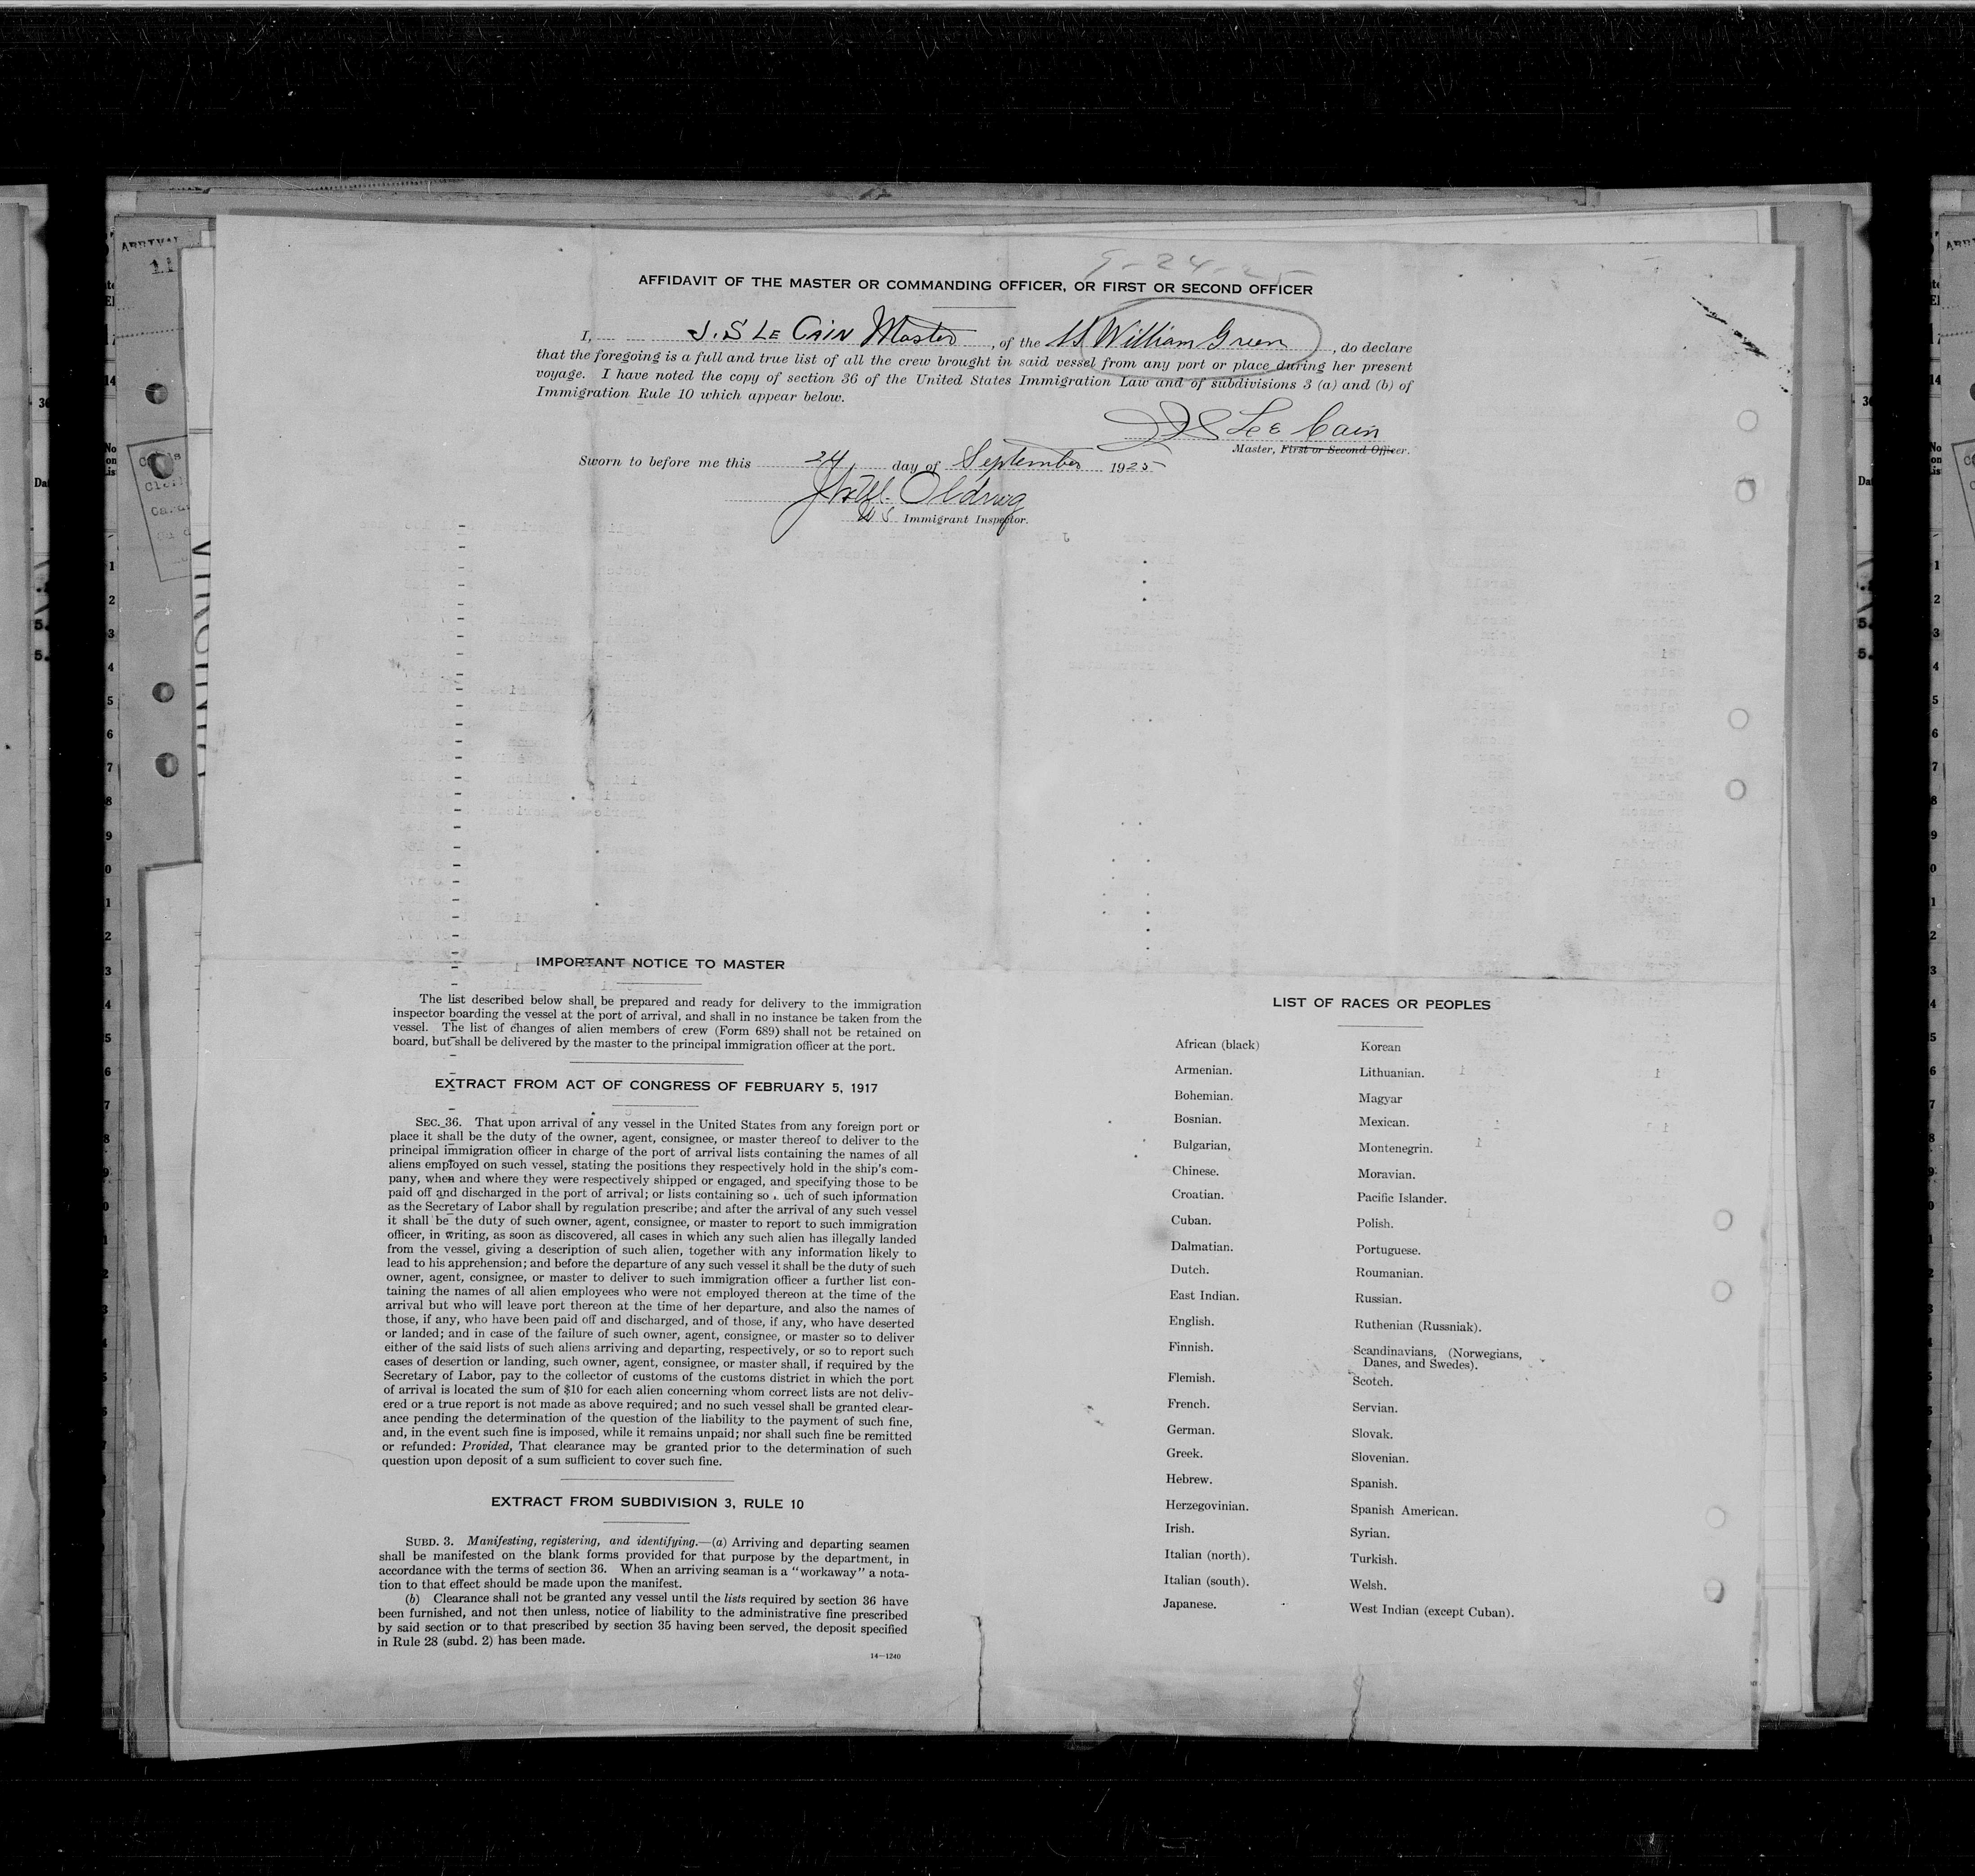 9-24-25
AFFIDAVIT OF THE MASTER OR COMMANDING OFFICER, OR FIRST OR SECOND OFFICER
I, J. S LE CAIN Master, of the SS William Green, do declare
that the foregoing is a full and true list of all the crew brought in said vessel from any port or place during her present
voyage. I have noted the copy of section 36 of the United States Immigration Law and of subdivisions 3 (a) and (b) of
Immigration Rule 10 which appear below.
J S Le Cain
Master, First or Second Officer.
Sworn to before me this 24 day of September 1925
US Immigrant Inspector.
IMPORTANT NOTICE TO MASTER
The list described below shall be prepared and ready for delivery to the immigration
inspector boarding the vessel at the port of arrival, and shall in no instance be taken from the
vessel. The list of changes of alien members of crew (Form 689) shall not be retained on
board, but shall be delivered by the master to the principal immigration officer at the port.
EXTRACT FROM ACT OF CONGRESS OF FEBRUARY 5, 1917
SEC. 36. That upon arrival of any vessel in the United States from any foreign port or
place it shall be the duty of the owner, agent, consignee, or master thereof to deliver to the
principal immigration officer in charge of the port of arrival lists containing the names of all
aliens employed on such vessel, stating the positions they respectively hold in the ship's com-
pany, when and where they were respectively shipped or engaged, and specifying those to be
paid off and discharged in the port of arrival; or lists containing so much of such information
as the Secretary of Labor shall by regulation prescribe; and after the arrival of any such vessel
it shall be the duty of such owner, agent, consignee, or master to report to such immigration
officer, in writing, as soon as discovered, all cases in which any such alien has illegally landed
from the vessel, giving a description of such alien, together with any information likely to
lead to his apprehension; and before the departure of any such vessel it shall be the duty of such
owner, agent, consignee, or master to deliver to such immigration officer a further list con-
taining the names of all alien employees who were not employed thereon at the time of the
arrival but who will leave port thereon at the time of her departure, and also the names of
those, if any, who have been paid off and discharged, and of those, if any, who have deserted
or landed; and in case of the failure of such owner, agent, consignee, or master so to deliver
either of the said lists of such aliens arriving and departing, respectively, or so to report such
cases of desertion or landing, such owner, agent, consignee, or master shall, if required by the
Secretary of Labor, pay to the collector of customs of the customs district in which the port
of arrival is located the sum of $10 for each alien concerning whom correct lists are not deliv-
ered or a true report is not made as above required; and no such vessel shall be granted clear-
ance pending the determination of the question of the liability to the payment of such fine,
and, in the event such fine is imposed, while it remains unpaid; nor shall such fine be remitted
or refunded: Provided, That clearance may be granted prior to the determination of such
question upon deposit of a sum sufficient to cover such fine.
EXTRACT FROM SUBDIVISION 3, RULE 10
SUBD. 3. Manifesting, registering, and identifying.—(a) Arriving and departing seamen
shall be manifested on the blank forms provided for that purpose by the department, in
accordance with the terms of section 36. When an arriving seaman is a "workaway" a nota-
tion to that effect should be made upon the manifest.
(b) Clearance shall not be granted any vessel until the lists required by section 36 have
been furnished, and not then unless, notice of liability to the administrative fine prescribed
by said section or to that prescribed by section 35 having been served, the deposit specified
in Rule 28 (subd. 2) has been made.
14—1240
LIST OF RACES OR PEOPLES
African (black)
Armenian.
Bohemian.
Bosnian.
Bulgarian,
Chinese.
Croatian.
Cuban.
Dalmatian.
Dutch.
East Indian.
English.
Finnish.
Flemish.
French.
German.
Greek.
Hebrew.
Herzegovinian.
Irish.
Italian (north).
Italian (south).
Japanese.
Korean
Lithuanian.
Magyar
Mexican.
Montenegrin.
Moravian.
Pacific Islander.
Polish.
Portuguese.
Roumanian.
Russian.
Ruthenian (Russniak).
Scandinavians, (Norwegians,
Danes, and Swedes).
Scotch.
Servian.
Slovak.
Slovenian.
Spanish.
Spanish American.
Syrian.
Turkish.
Welsh.
West Indian (except Cuban).